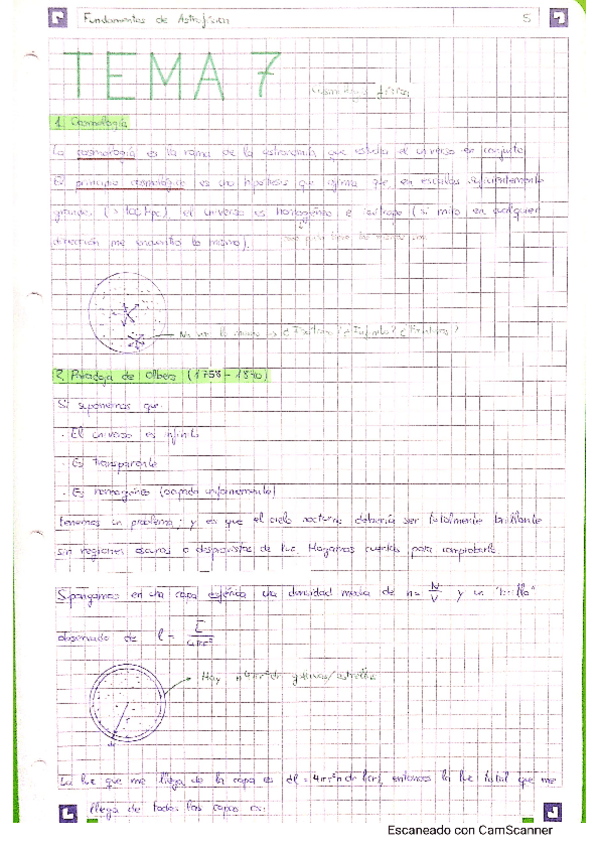 Fundamentos de Astrofísica 5
TEMA 7
1. Cosmología
La cosmología es la rama de la astronomía que estudia el universo en conjunto.
El principio cosmológico es una hipótesis que afirma que, en escalas suficientemente
grandes (> 100 Mpc), el universo es homogéneo e isótropo (si miro en cualquier
dirección me encuentro lo mismo).
No se lo que es ¿ ? ¿ ? ¿Frontera?
2. Paradoja de Olbers (1758 - 1840)
Si suponemos que:
· El universo es infinito
· Es transparente
· Es homogéneo (poblado uniformemente)
tenemos un problema; y es que el cielo nocturno debería ser totalmente brillante
sin regiones oscuras o desprovistas de luz. Hagamos cuentas para comprobarlo.
Supongamos en una capa esférica una densidad media de n = N/V y un "brillo"
observado de l = L/4πr²
Hay n4πr²dr galaxias/estrellas
r
dr
La luz que me llega de la capa es dl = 4πr²n dr l(r), entonces la luz total que me
llega de todas las capas es:
Escaneado con CamScanner